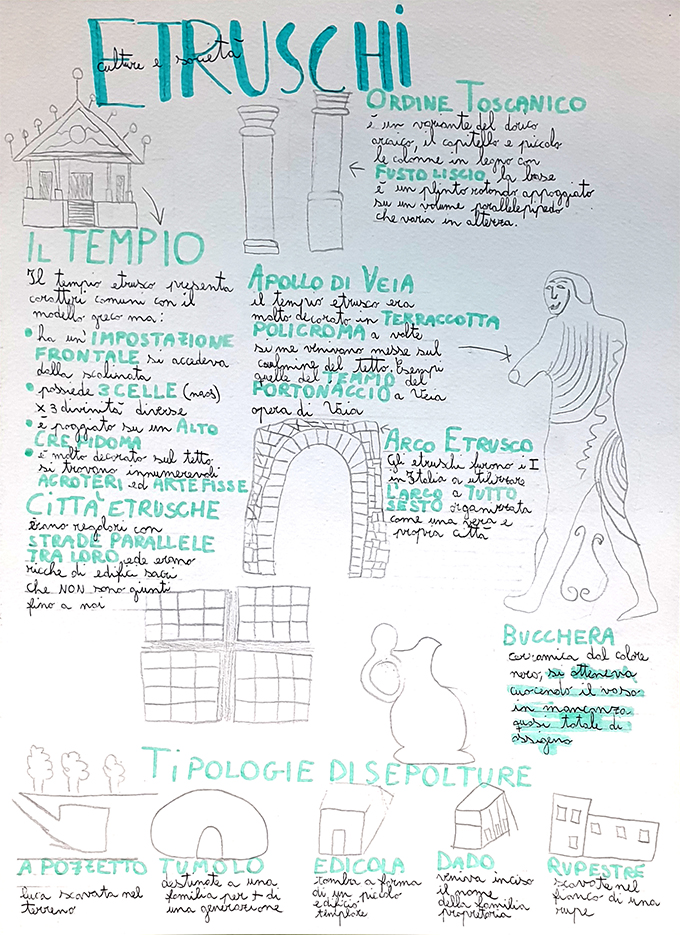 ETRUSCHI
culture e società
ORDINE TOSCANICO
è un variante del dorico
arcaico, il capitello e piccolo
le colonne in legno con
FUSTO LISCIO, la base
è un plinto rotondo appoggiato
su un volume parallelepipedo
che varia in altezza.
IL TEMPIO
Il tempio etrusco presenta
caratteri comuni con il
modello greco ma:
• ha un'IMPOSTAZIONE
FRONTALE si accedeva
dalla scalinata
• possiede 3 CELLE (naos)
x 3 divinità diverse
• è poggiato su un ALTO
CREPIDOMA
• è molto decorato sul tetto
si trovano innumerevoli
AGROTERI ed ARTEFISSE
APOLLO DI VEIA
il tempio etrusco era
molto decorato in TERRACCOTTA
POLICROMA a volte
si me venivano messe sul
del tetto. Esempi
quelle del TEMPIO del
PORTONACCIO a Veia
opera di Vaia
ARCO ETRUSCO
Gli etruschi furono i I
in Italia a utilizzare
L'ARCO a TUTTO
SESTO organizzata
come una vera e
propria città
CITTÀ ETRUSCHE
erano regolari con
STRADE PARALLELE
TRA LORO, ede erano
ricche di edifici sacri
che NON sono giunti
fino a noi
BUCCHERA
ceramica dal colore
nero, si otteneva
cuocendo il vaso
in mancanza
quasi totale di
ossigeno
TIPOLOGIE DI SEPOLTURE
A POZZETTO
buca scavata nel
terreno
TUMOLO
destinate a una
familia per + di
una generazione
EDICOLA
tomba a forma
di un piccolo
edificio
templare
DADO
veniva inciso
il nome
della familia
proprietaria
RUPESTRE
scavate nel
fianco di una
rupe